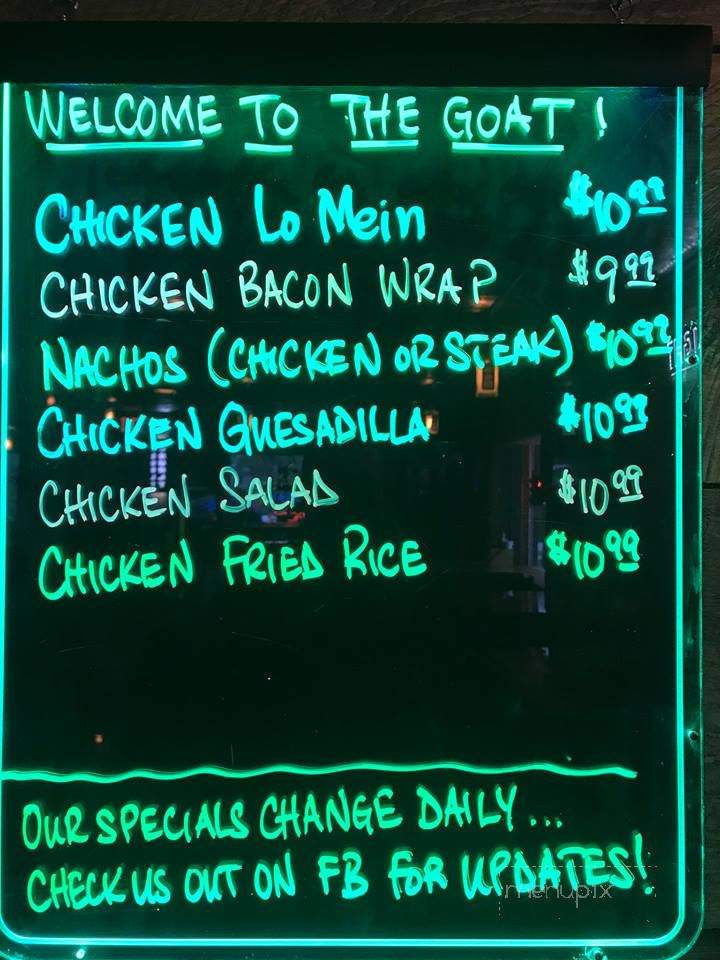 WELCOME TO THE GOAT!
CHICKEN Lo Mein $10.99
CHICKEN BACON WRAP $9.99
NACHOS (CHICKEN OR STEAK) $10.99
CHICKEN QUESADILLA $10.99
CHICKEN SALAD $10.99
CHICKEN FRIED RICE $10.99
OUR SPECIALS CHANGE DAILY...
CHECK US OUT ON FB FOR UPDATES!
menupix